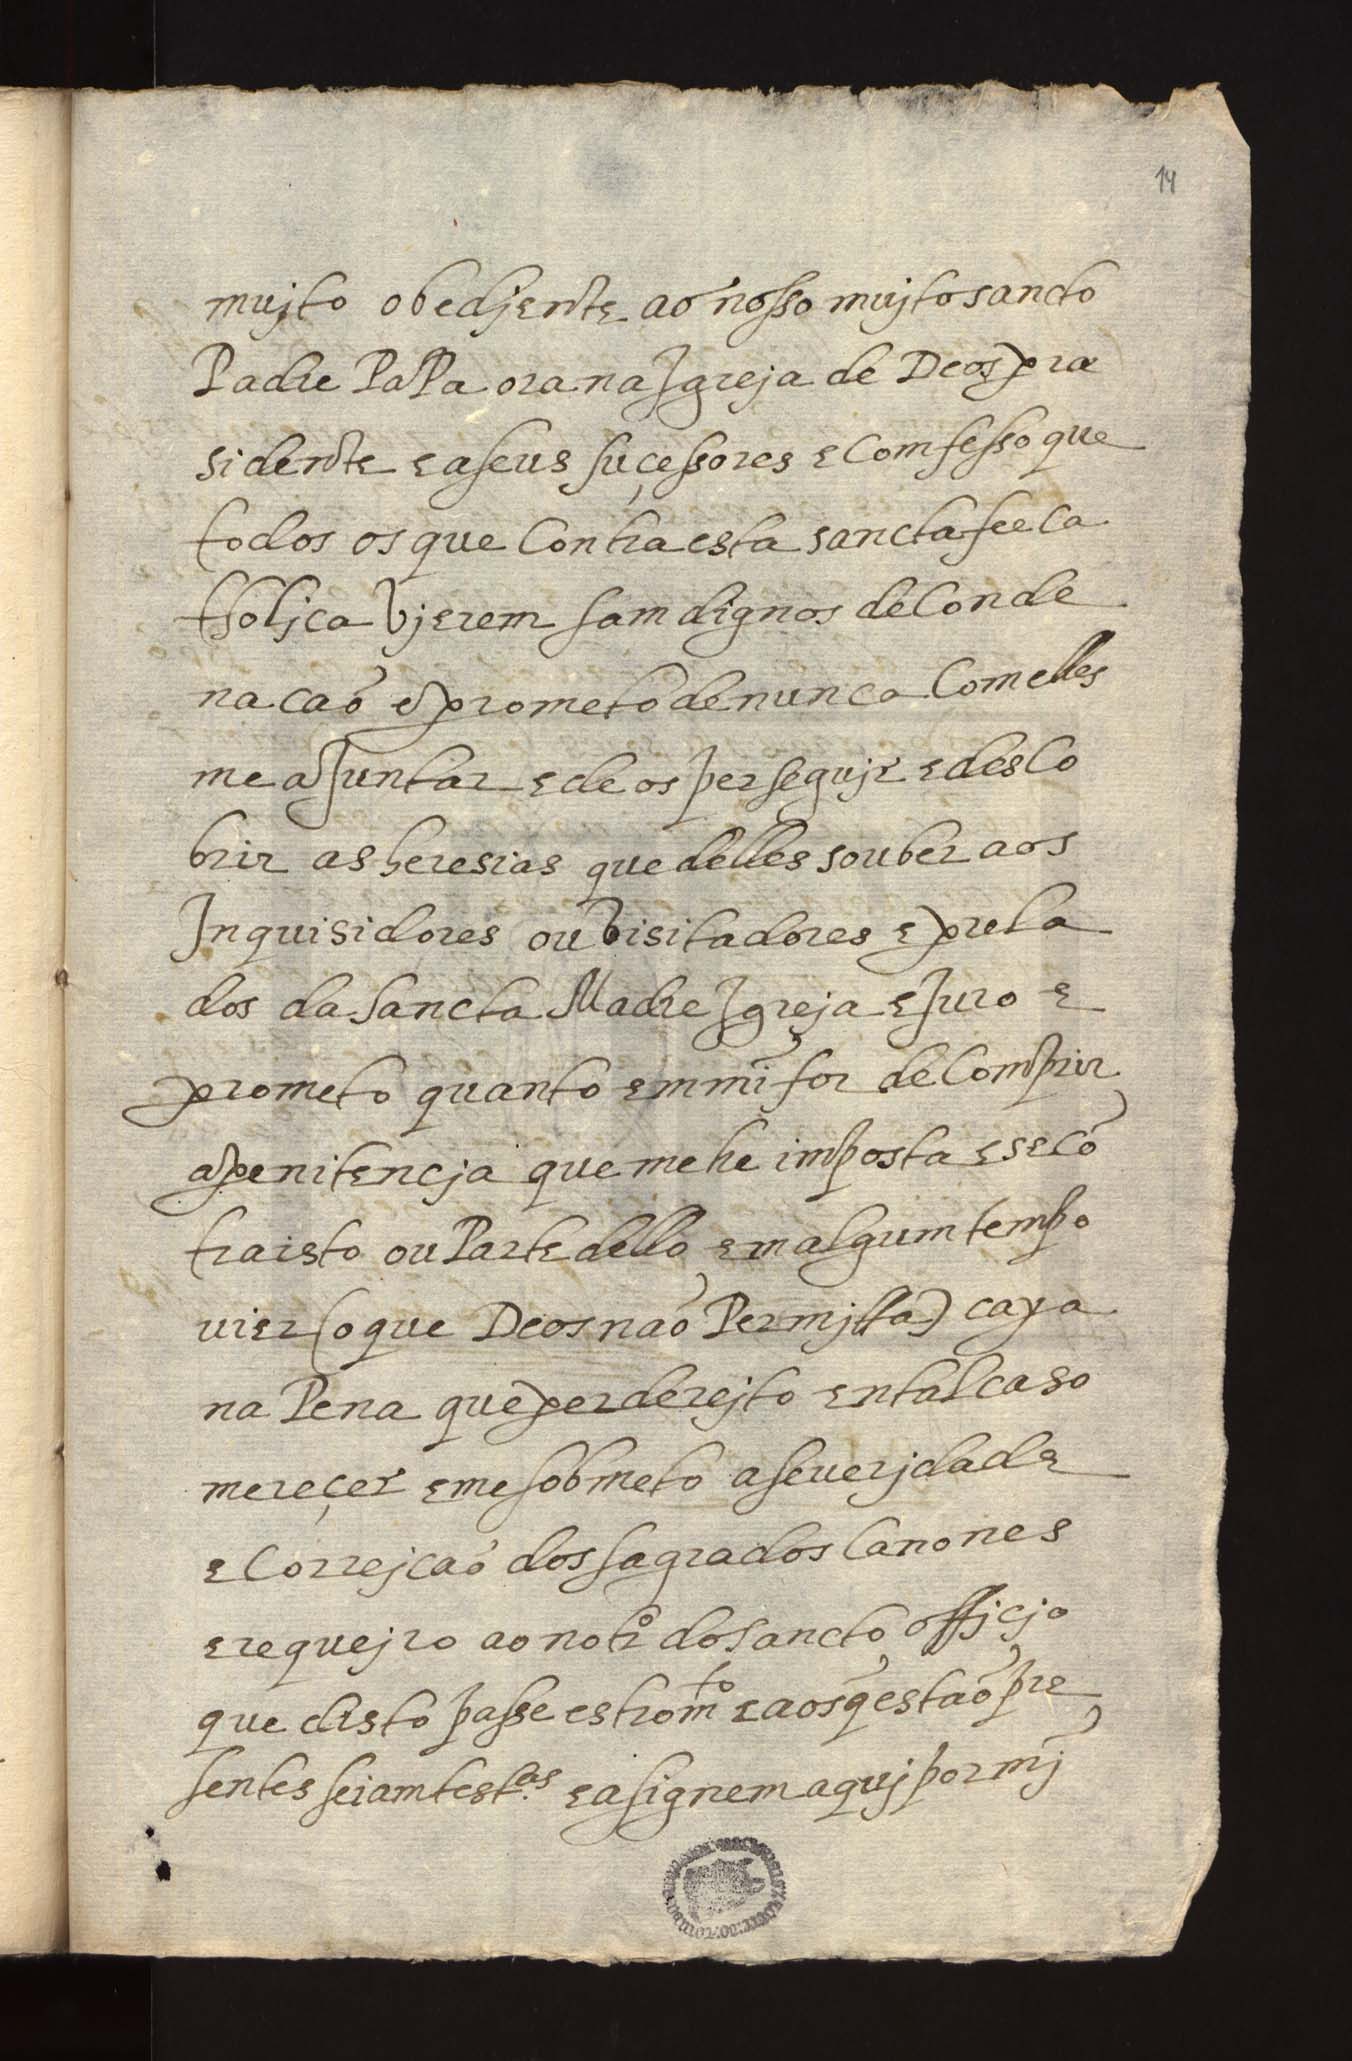 14
mujto obedjente ao nosso mujto sancto
Padre PaPa ora na Igreja de Deos pre
sidente e a seus suçessores e comfesso que
todos os que contra esta sancta fee ca
tholjca vjerem sam dignos de conde
nacaõ e prometo de nunca com elles
me ajuntar e de os perseguir e desco
brir as heresias que delles souber aos
Inquisidores ou Visitadores e prela
dos da sancta Madre Igreja e juro e
prometo quanto em mĩ for de comprir
a penitencja que me he imposta e se cõ
tra isto ou Parte dello em algum tempo
vier (o que Deos naõ Permjtta) caya
na Pena que per derejto en tal caso
mereçer e me sobmeto a seuerjdade
e Correjcaõ dos sagrados Canones
e requejro ao notrº do sancto officjo
que disto passe estromto e aos q̃ estaõ pre
sentes seiam test.as e asignem aquj por mj̃